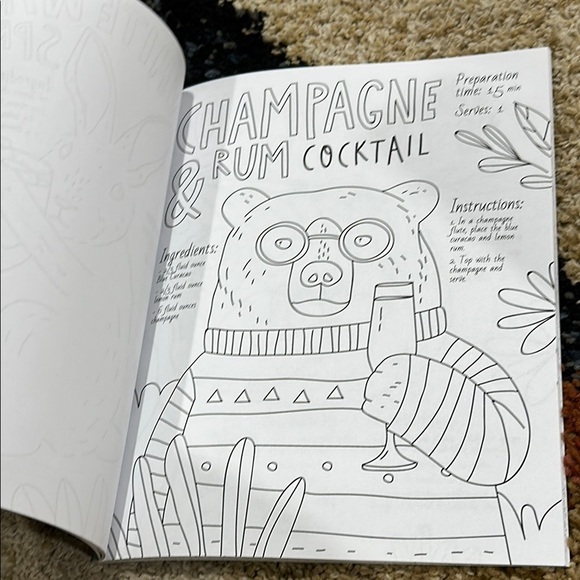 CHAMPAGNE
& RUM COCKTAIL
Preparation
time: 15 min
Serves: 1
Ingredients:
fluid ounce
Blue Curacao
fluid ounce
lemon rum
fluid ounces
champagne
Instructions:
1. In a champagne
flute, place the blue
curacao and lemon
rum.
2. Top with the
champagne and
serve.